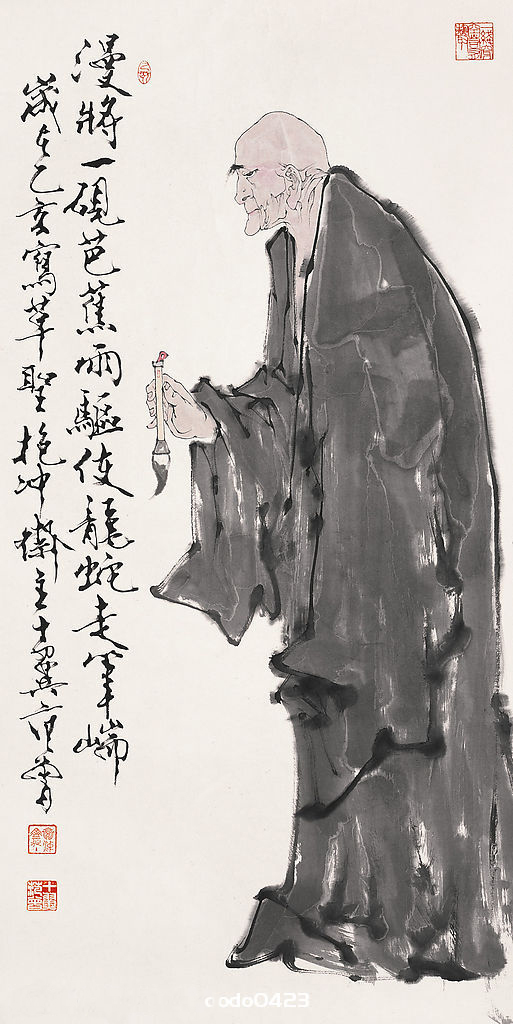 漫將一硯芭蕉雨驅使龍蛇走筆端
歲在乙亥寫草聖抱沖齋主十翼范曾
codo0423